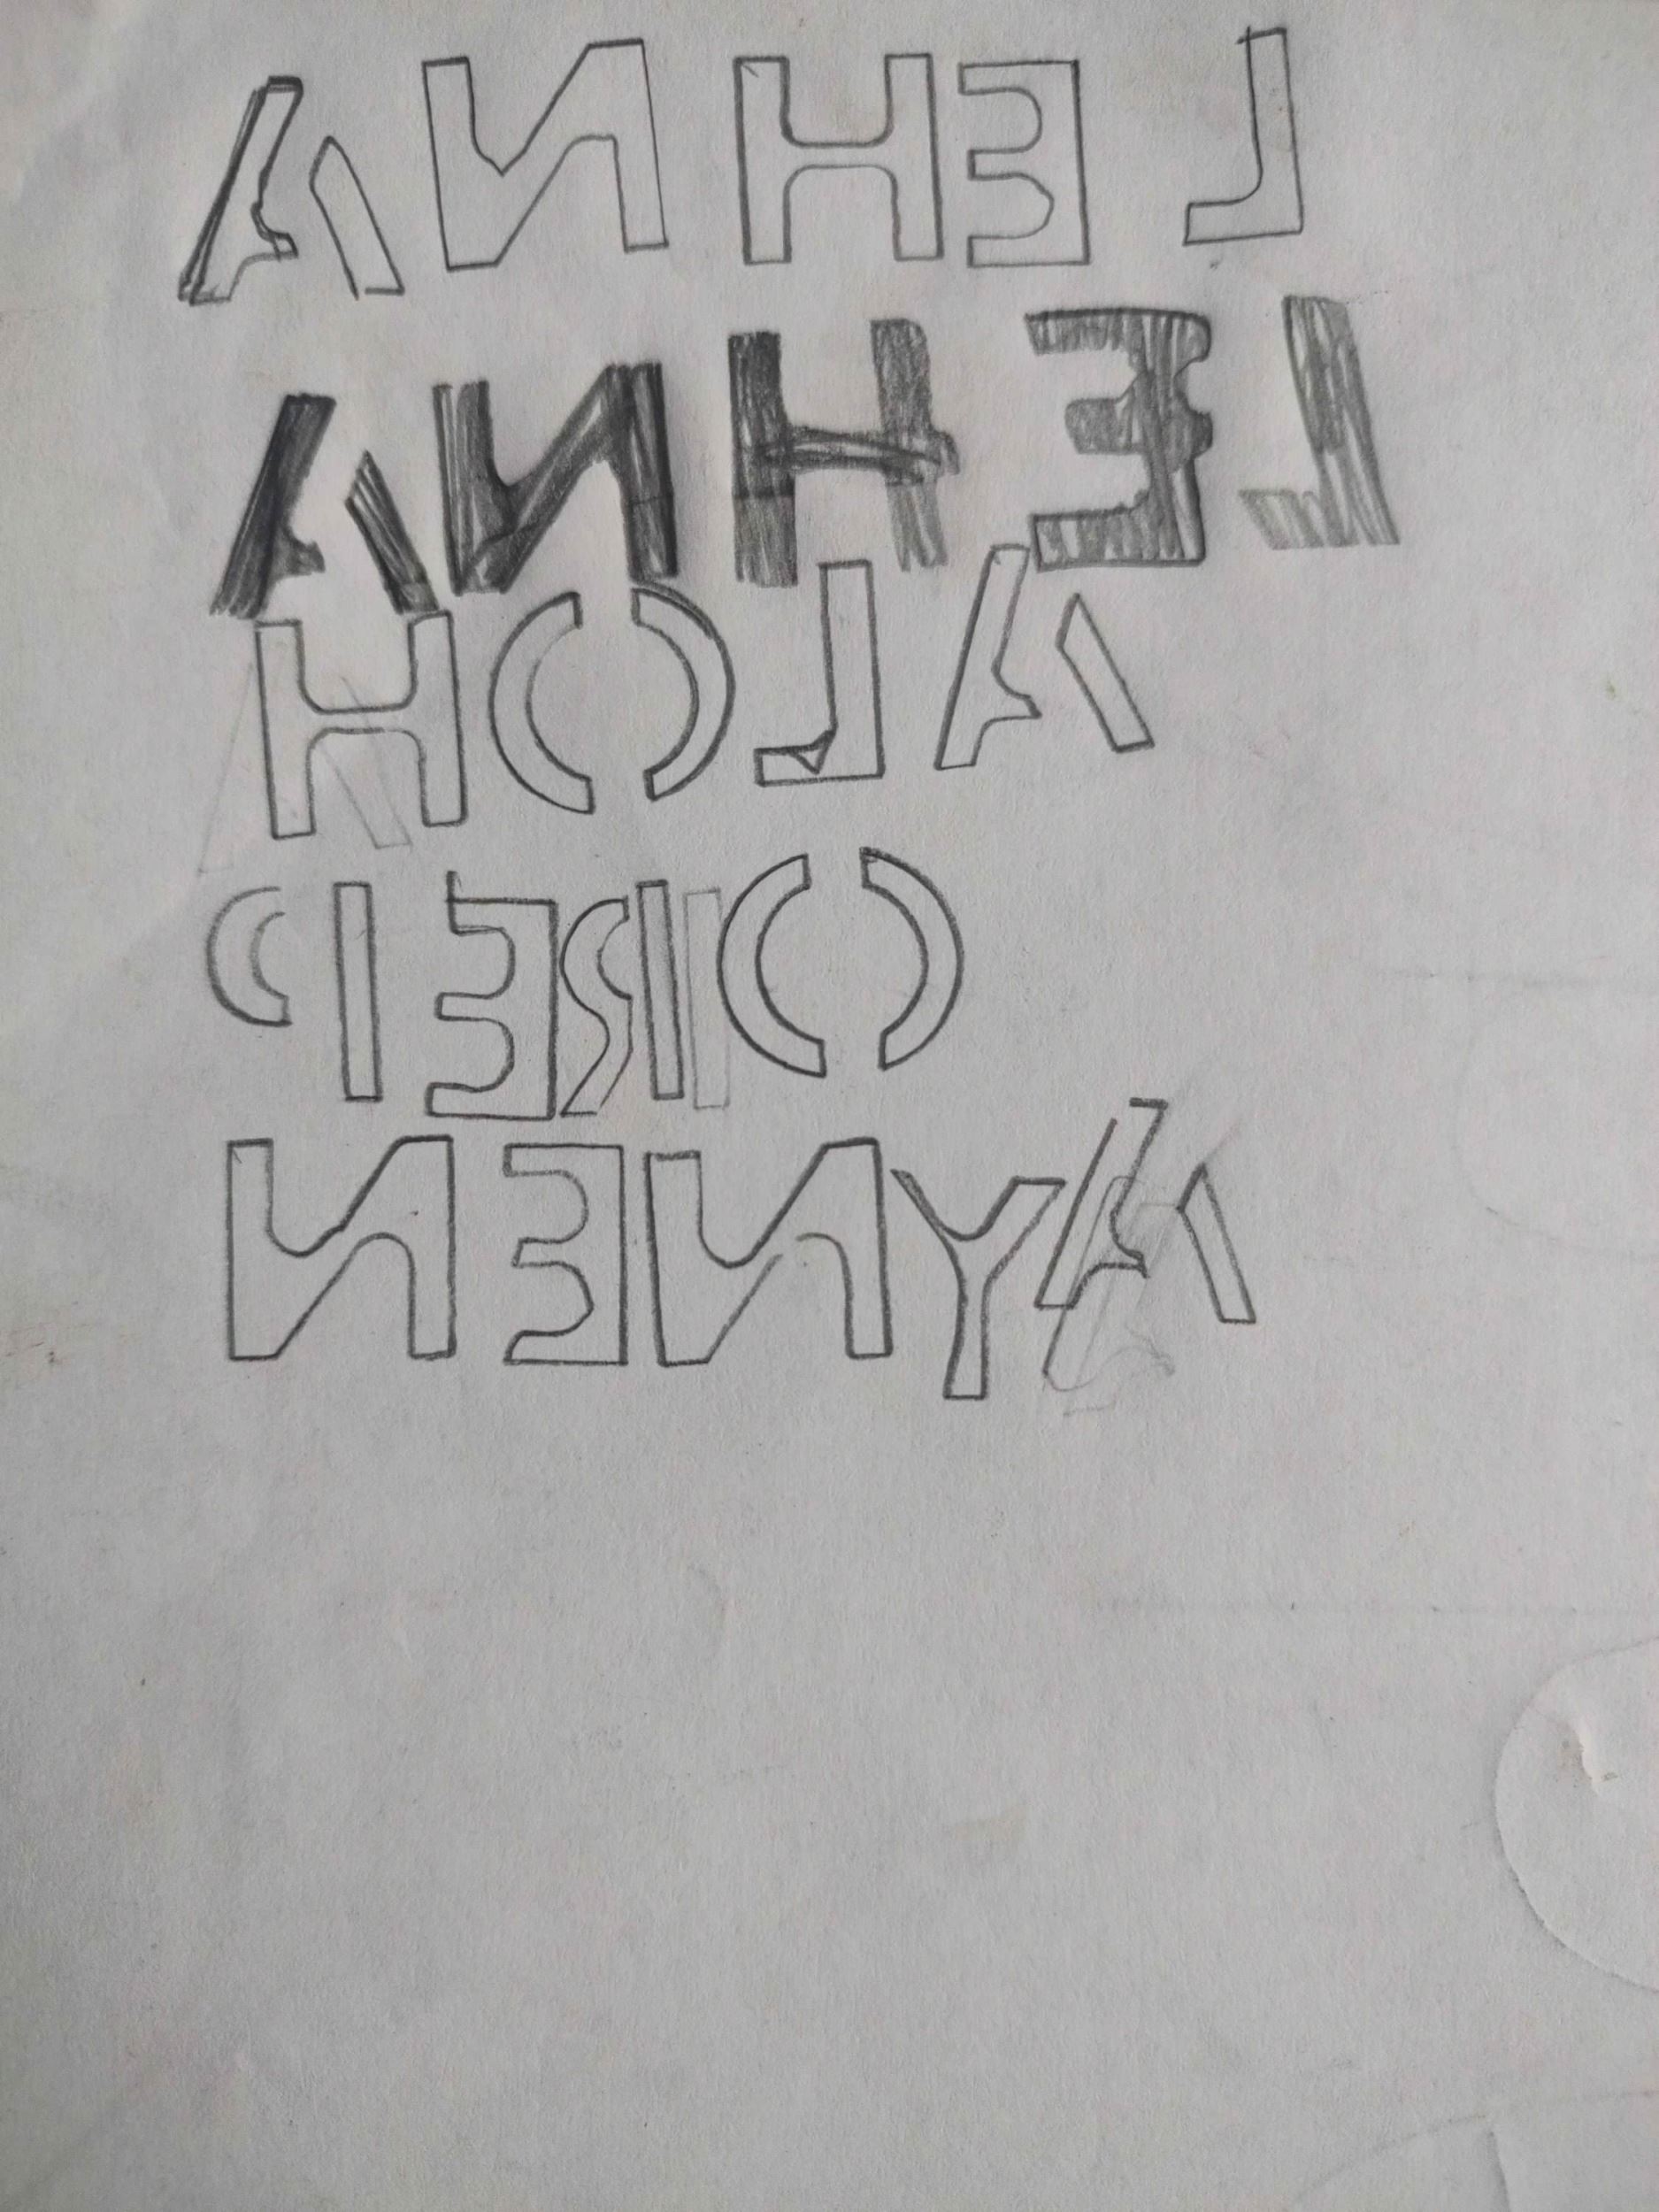 ANHEL
ANHEL
HOLA
PERO
NENYA